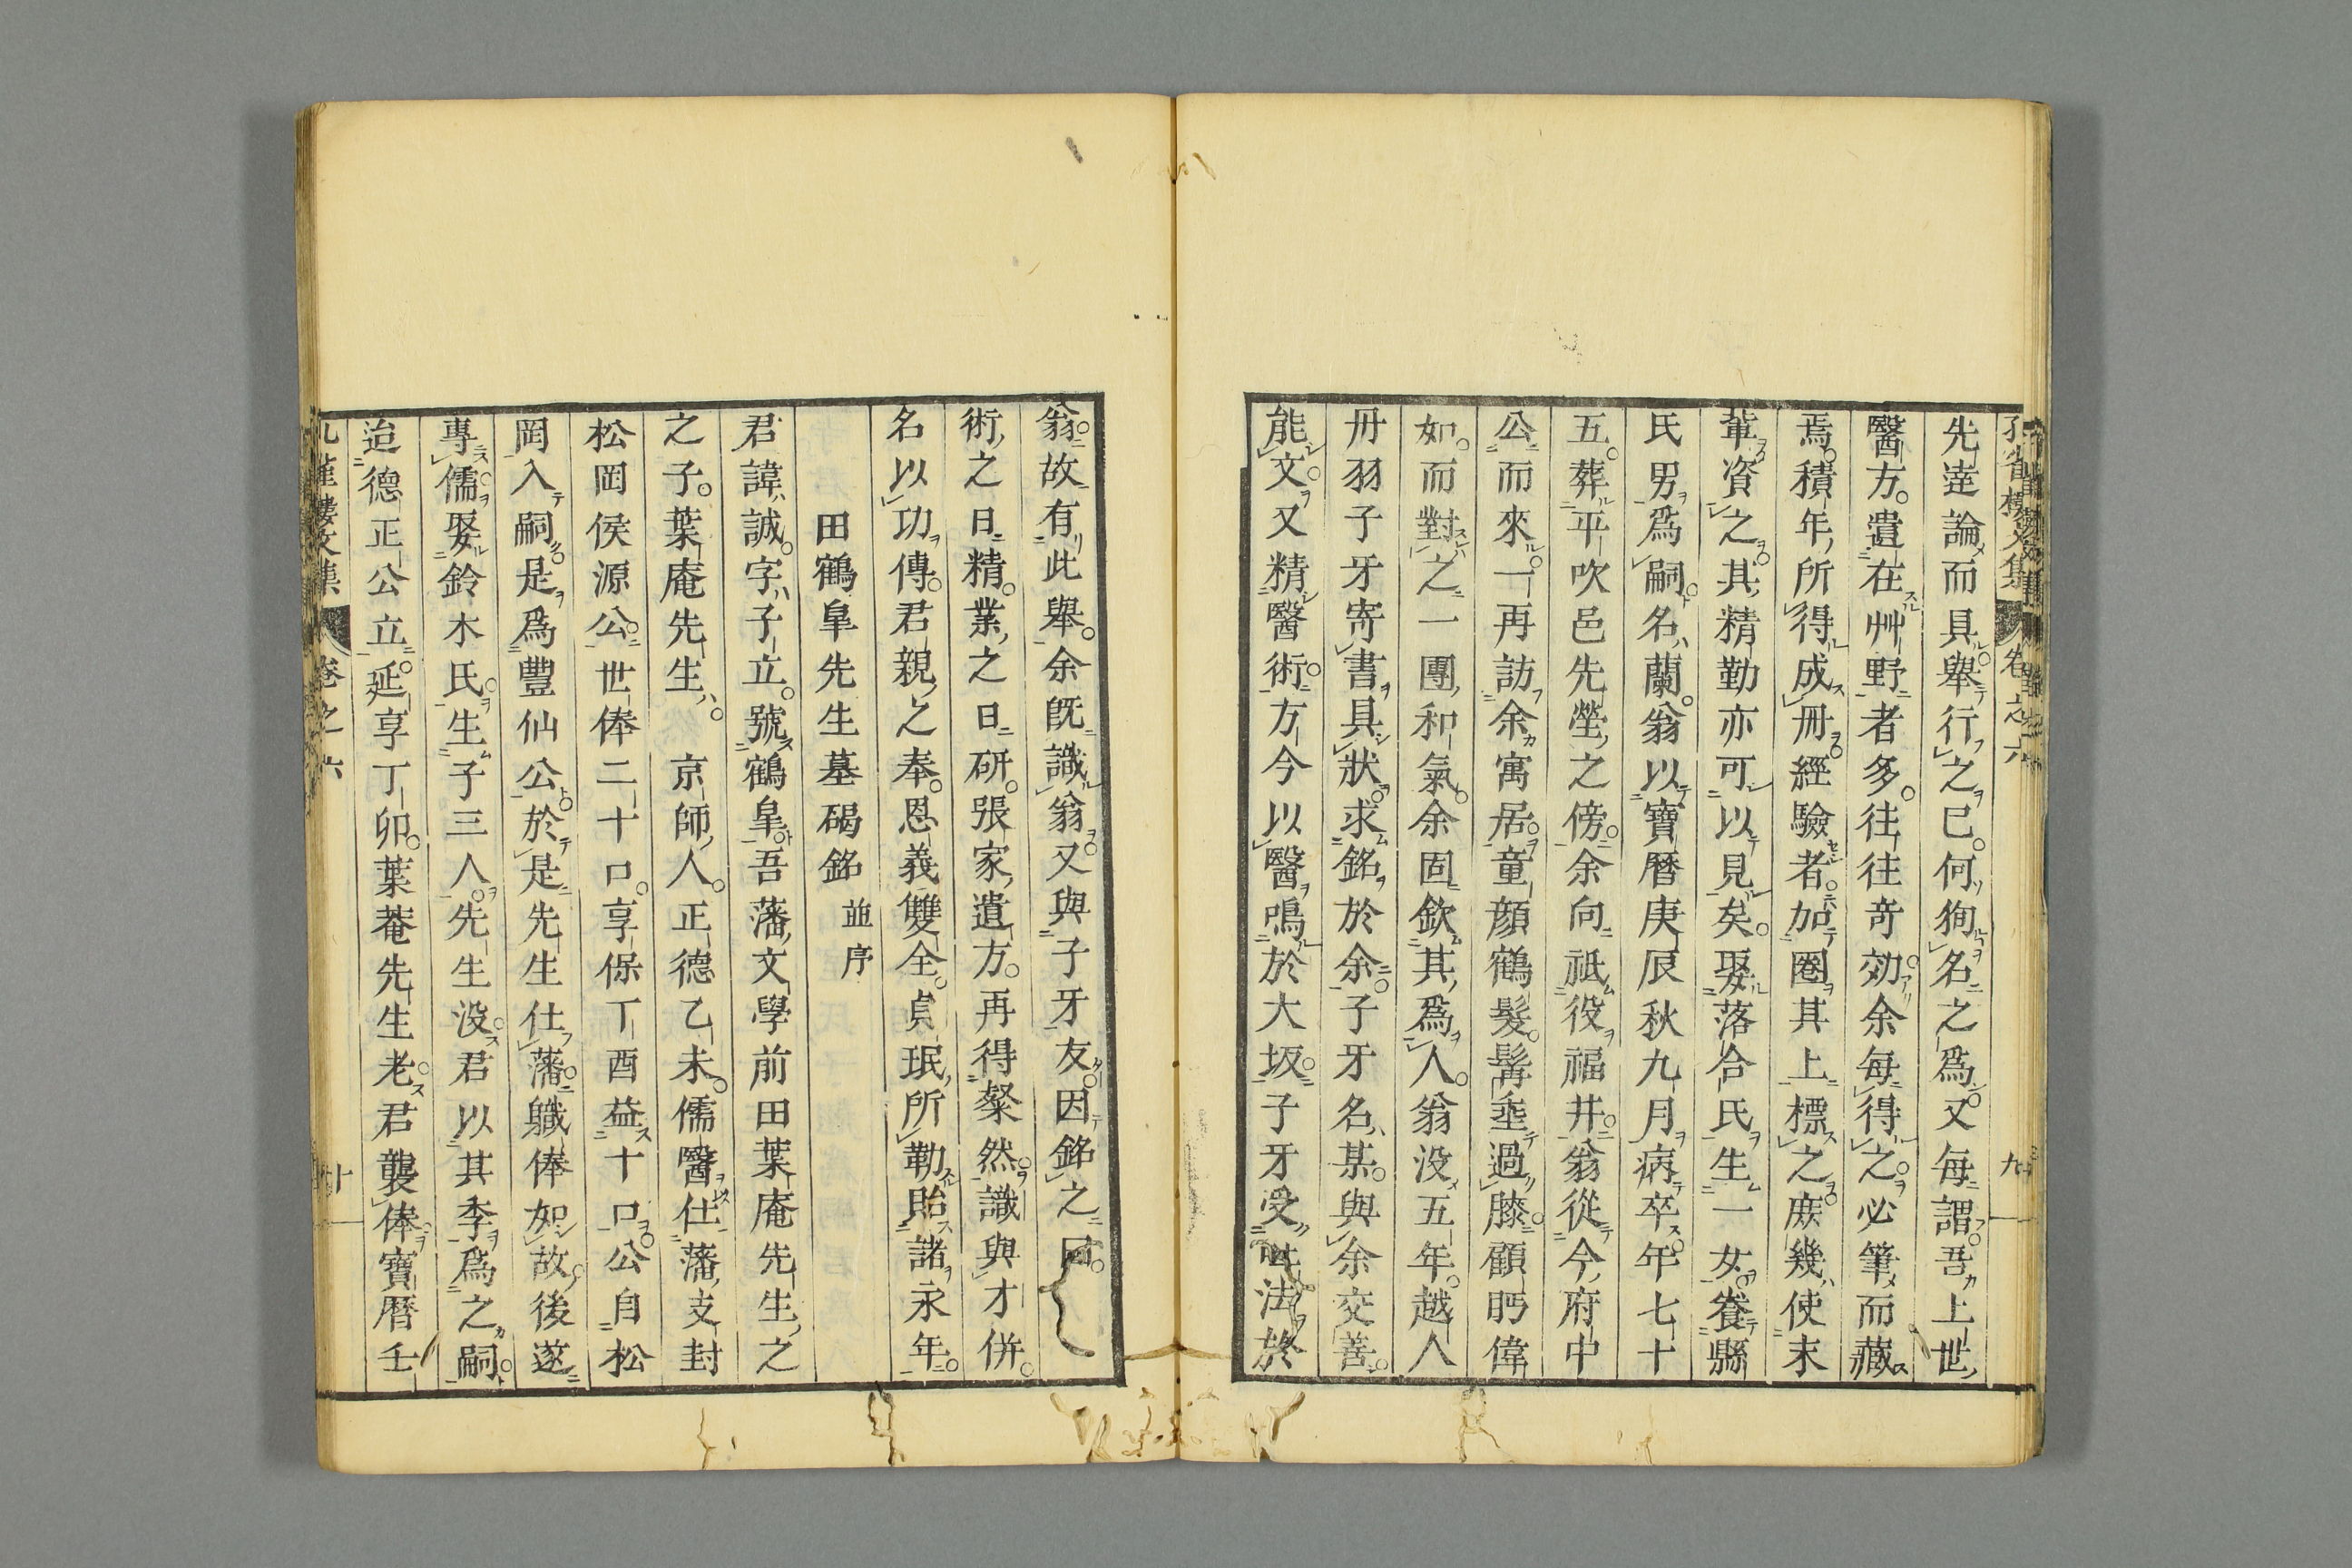 先達論而具舉行之已何狥名之爲又每謂吾上世
醫方遺在艸野者多往往奇効余每得之必筆而藏
焉積年所得成冊經驗者加圈其上標之庶幾使末
輩資之其精勤亦可以見矣娶落合氏生一女養縣
氏男爲嗣名蘭翁以寶暦庚辰秋九月病卒年七十
五葬平吹邑先塋之傍余向祗役福井翁從今府中
公而來一再訪余寓居童顔鶴髮髯垂過膝顧眄偉
如而對之一團和氣余固欽其爲人翁没五年越人
丹羽子牙寄書具狀求銘於余子牙名某與余交善
能文又精醫術方今以醫鳴於大坂子牙受法於
翁故有此舉余既識翁又與子牙友因銘之曰
術之日精業之日研張家遺方再得粲然識與才併
名以功傳君親之奉恩義雙全貞珉所勒貽諸永年
田鶴皐先生墓碣銘 並序
君諱誠字子立號鶴皐吾藩文學前田葉庵先生之
之子葉庵先生京師人正德乙未儒醫仕藩支封
松岡侯源公世俸二十口享保丁酉益十口公自松
岡入嗣是爲豐仙公於是先生仕藩職俸如故後遂
專儒娶鈴木氏生子三人先生没君以其季爲之嗣
迨德正公立延享丁卯葉菴先生老君襲俸寶暦壬
卷之六
九
卷之六
十